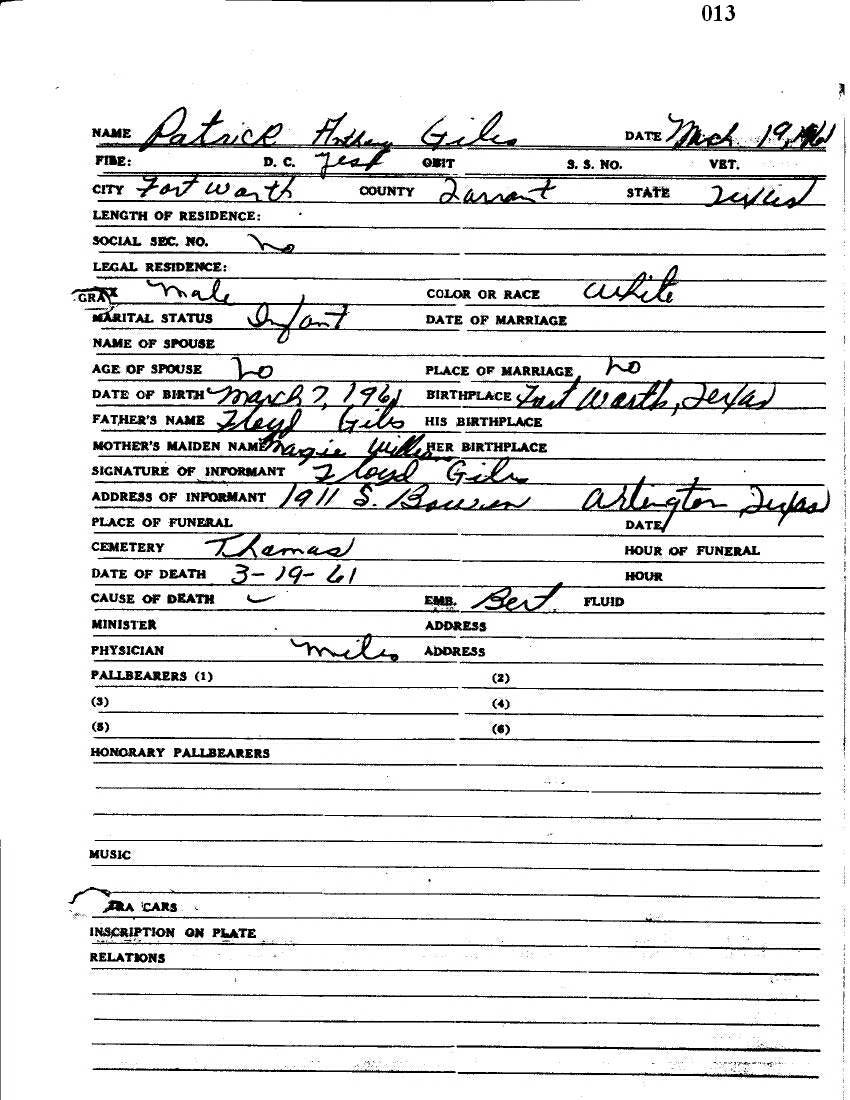 013
NAME Patrick Anthony Giles DATE Mch 19, 1961
FIBE: D. C. yes OBIT S. S. NO. VET.
CITY Fort Warth COUNTY Tarrant STATE Texas
LENGTH OF RESIDENCE:
SOCIAL SEC. NO. no
LEGAL RESIDENCE:
GRA X male COLOR OR RACE White
MARITAL STATUS Infant DATE OF MARRIAGE
NAME OF SPOUSE
AGE OF SPOUSE no PLACE OF MARRIAGE no
DATE OF BIRTH March 7, 1961 BIRTHPLACE Fort Warth, Texas
FATHER'S NAME Floyd Giles HIS BIRTHPLACE
MOTHER'S MAIDEN NAME HER BIRTHPLACE
SIGNATURE OF INFORMANT Floyd Giles
ADDRESS OF INFORMANT 1911 S. Bowen Arlington Texas
PLACE OF FUNERAL DATE
CEMETERY Thomas HOUR OF FUNERAL
DATE OF DEATH 3-19-61 HOUR
CAUSE OF DEATH EMB. Bert FLUID
MINISTER ADDRESS
PHYSICIAN miles ADDRESS
PALLBEARERS (1) (2)
(3) (4)
(5) (6)
HONORARY PALLBEARERS
MUSIC
RA CARS
INSCRIPTION ON PLATE
RELATIONS